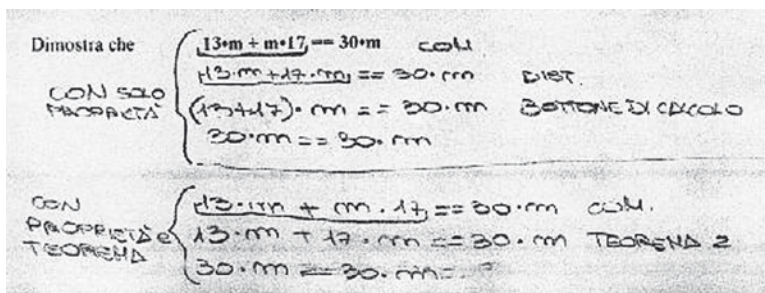 Dimostra che 13•m + m•17 == 30•m COM
13·m + 17·m == 30·m DIST.
CON SOLO PROPRIETÀ
(13+17)·m == 30·m BOTTONE DI CALCOLO
30·m == 30·m
CON PROPRIETÀ e TEOREMA
13·m + m·17 == 30·m COM.
13·m + 17·m == 30·m TEOREMA 2
30·m == 30·m